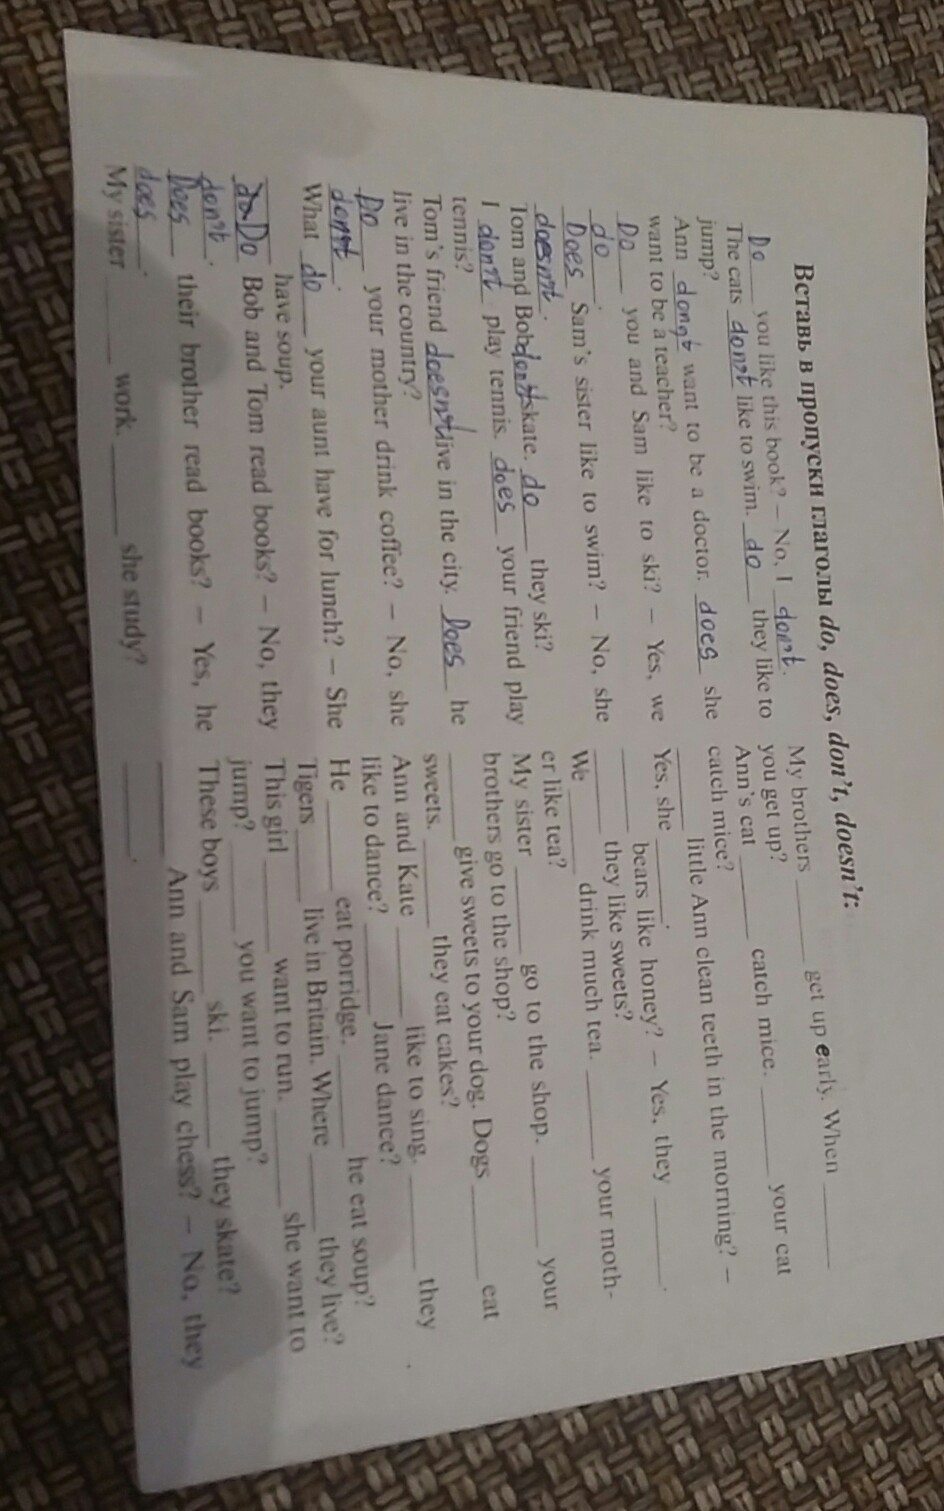 Вставь в пропуски глаголы do, does, don't, doesn't:
Do you like this book? – No, I don't.
The cats don't like to swim. do they like to
jump?
Ann dongt want to be a doctor. does she
want to be a teacher?
Do you and Sam like to ski? – Yes, we
do.
Does Sam's sister like to swim? – No, she
doesn't.
Tom and Bob don't skate. do they ski?
I don't play tennis. does your friend play
tennis?
Tom's friend doesn't live in the city. Does he
live in the country?
Do your mother drink coffee? – No, she
don't.
What do your aunt have for lunch? – She
____ have soup.
do Do Bob and Tom read books? – No, they
don't.
Does their brother read books? – Yes, he
does.
My sister ____ work. ____ she study?
My brothers ____ get up early. When ____
you get up?
Ann's cat ____ catch mice. ____ your cat
catch mice?
____ little Ann clean teeth in the morning? –
Yes, she ____.
____ bears like honey? – Yes, they ____.
____ they like sweets?
We ____ drink much tea. ____ your moth-
er like tea?
My sister ____ go to the shop. ____ your
brothers go to the shop?
____ give sweets to your dog. Dogs ____ eat
sweets. ____ they eat cakes?
Ann and Kate ____ like to sing. ____ they
like to dance? ____ Jane dance?
He ____ eat porridge. ____ he eat soup?
Tigers ____ live in Britain. Where ____ they live?
This girl ____ want to run. ____ she want to
jump? ____ you want to jump?
These boys ____ ski. ____ they skate?
____ Ann and Sam play chess? – No, they
____.